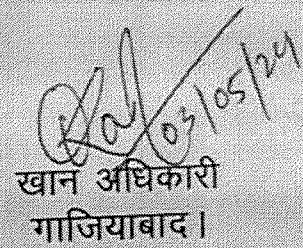 03/05/24
खान अधिकारी
गाजियाबाद।